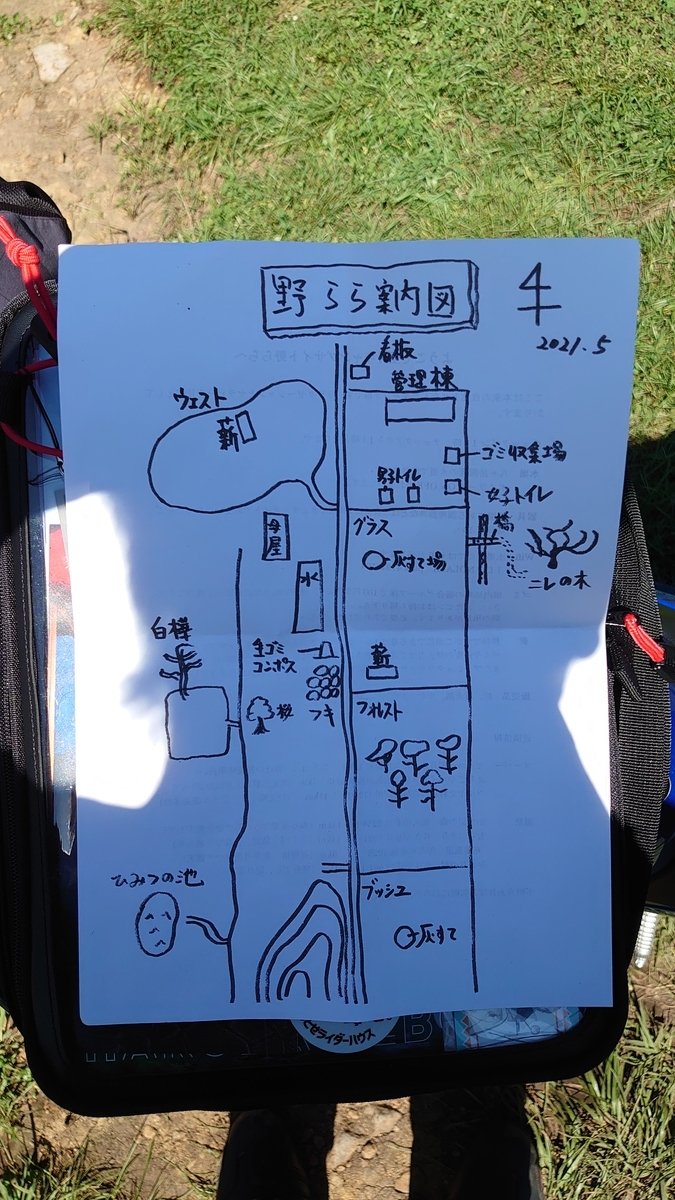 野らら案内図
2021.5
看板
管理棟
ウエスト
薪
ゴミ収集場
男子トイレ
女子トイレ
グラス
橋
母屋
灰すて場
ニレの木
水
白樺
生ゴミ
コンポス
薪
桜
フキ
フォレスト
ひみつの池
ブッシュ
灰すて
ライダーハウス